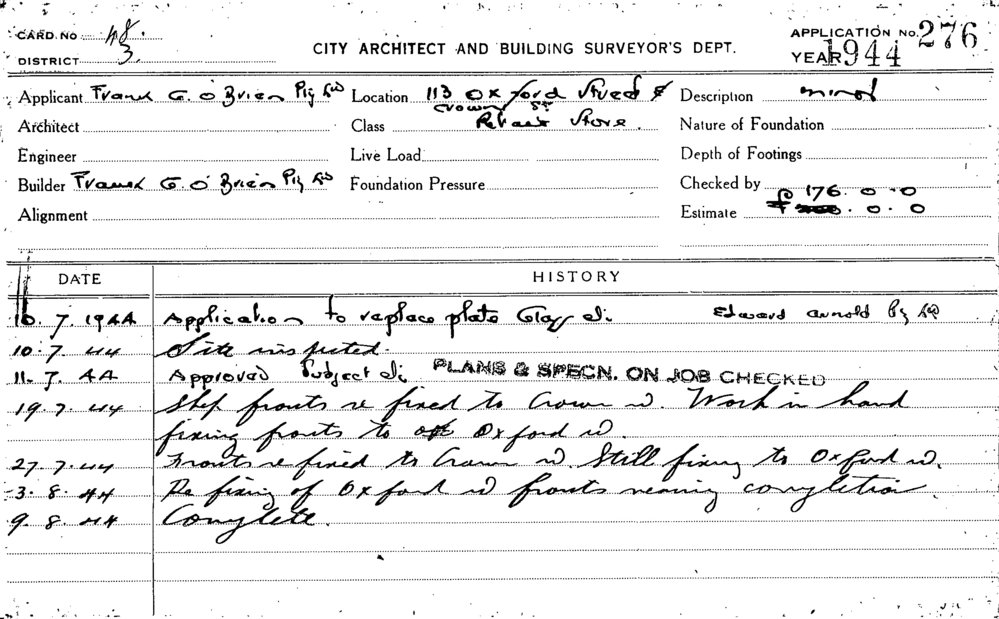 CARD. NO 48.
DISTRICT 3.
CITY ARCHITECT AND BUILDING SURVEYOR'S DEPT.
APPLICATION No. 276
YEAR 1944
Applicant Frank G. O'Brien Pty Ltd
Location 113 Oxford Street &
Crown St
Description minor
Architect
Class Retail Store.
Nature of Foundation
Engineer
Live Load
Depth of Footings
Builder Frank G. O'Brien Pty Ltd
Foundation Pressure
Checked by
£ 176. 0. 0
Alignment
Estimate £ . 0. 0
DATE HISTORY
10. 7. 1944 Application to replace plate Glass &c. Edward Arnold Pty Ltd
10. 7. 44 Site inspected.
11. 7. 44 Approved Subject &c. PLANS & SPECN. ON JOB CHECKED
19. 7. 44 Shop fronts re fixed to Crown st. Work in hand
fixing fronts to Oxford st.
27. 7. 44 Fronts re fixed to Crown st. Still fixing to Oxford st.
3. 8. 44 Re fixing of Oxford st fronts nearing completion.
9. 8. 44 Complete.